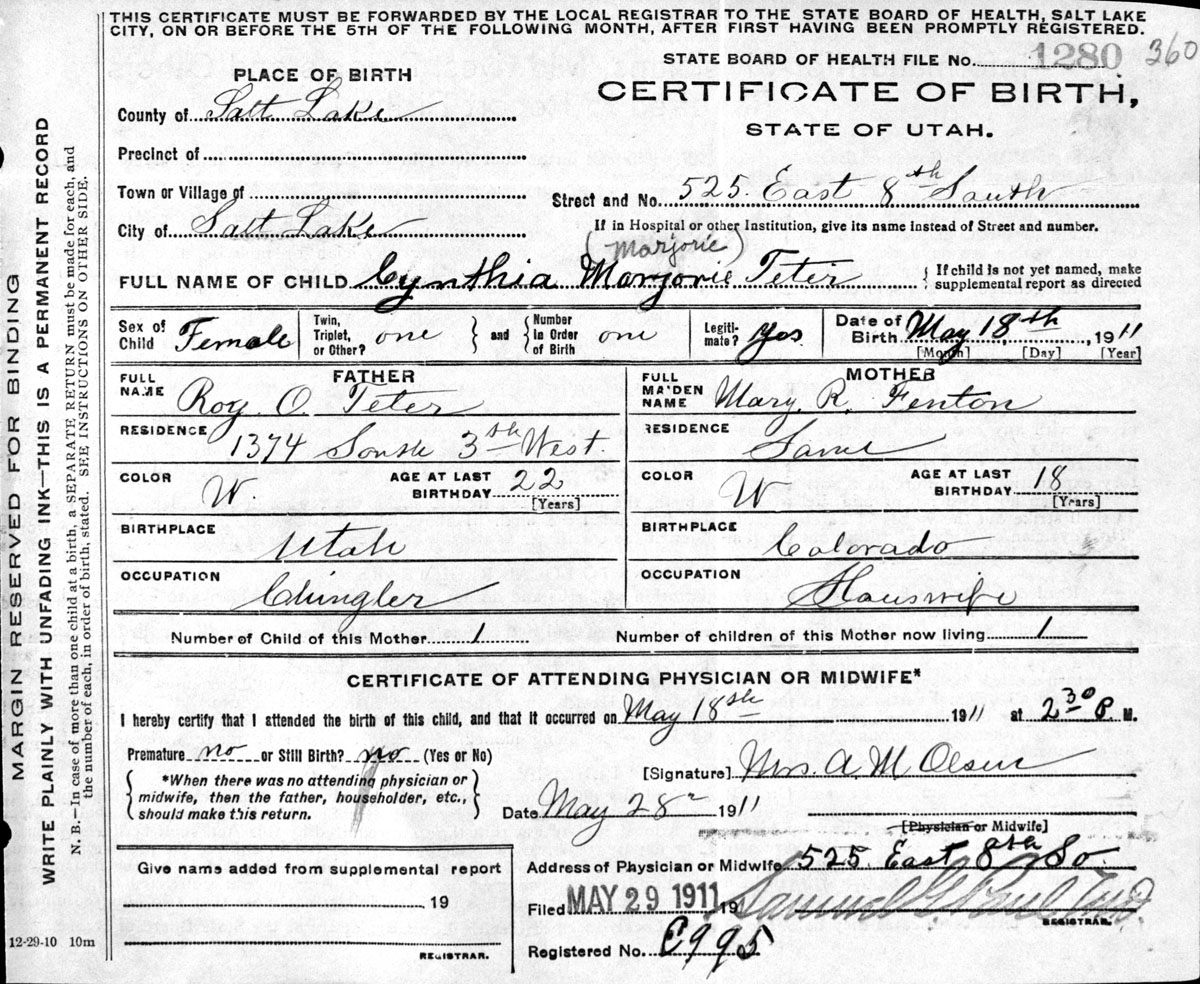 THIS CERTIFICATE MUST BE FORWARDED BY THE LOCAL REGISTRAR TO THE STATE BOARD OF HEALTH, SALT LAKE
CITY, ON OR BEFORE THE 5TH OF THE FOLLOWING MONTH, AFTER FIRST HAVING BEEN PROMPTLY REGISTERED.
MARGIN RESERVED FOR BINDING
WRITE PLAINLY WITH UNFADING INK—THIS IS A PERMANENT RECORD
N. B.—In case of more than one child at a birth, a SEPARATE RETURN must be made for each, and
the number of each, in order of birth, stated. SEE INSTRUCTIONS ON OTHER SIDE.
STATE BOARD OF HEALTH FILE No. 1280 360
PLACE OF BIRTH
CERTIFICATE OF BIRTH,
STATE OF UTAH.
County of Salt Lake
Precinct of
Town or Village of
Street and No. 525 East 8th South
City of Salt Lake
If in Hospital or other Institution, give its name instead of Street and number.
(Marjorie)
FULL NAME OF CHILD Cynthia Marjorie Teter
If child is not yet named, make
supplemental report as directed
Sex of Child Female
Twin, Triplet, or Other? one
and
Number In Order of Birth one
Legiti-mate? Yes
Date of Birth May 18th, 1911
[Month] [Day] [Year]
FATHER
FULL NAME Roy O. Teter
RESIDENCE 1374 South 3th West.
COLOR W.
AGE AT LAST BIRTHDAY 22
[Years]
BIRTHPLACE Utah
OCCUPATION Chingler
MOTHER
FULL MAIDEN NAME Mary R. Fenton
RESIDENCE Same
COLOR W
AGE AT LAST BIRTHDAY 18
[Years]
BIRTHPLACE Colorado
OCCUPATION Houswife
Number of Child of this Mother 1
Number of children of this Mother now living 1
CERTIFICATE OF ATTENDING PHYSICIAN OR MIDWIFE*
I hereby certify that I attended the birth of this child, and that it occurred on May 18th 1911 at 2 30 P. M.
Premature no or Still Birth? no (Yes or No)
*When there was no attending physician or
midwife, then the father, householder, etc.,
should make this return.
[Signature] Mrs. A. M Olsen
Date May 28 1911
[Physician or Midwife]
Address of Physician or Midwife 525 East 8th So
Filed MAY 29 1911 19
REGISTRAR.
Registered No. C995
Give name added from supplemental report
19
REGISTRAR.
12-29-10 10m